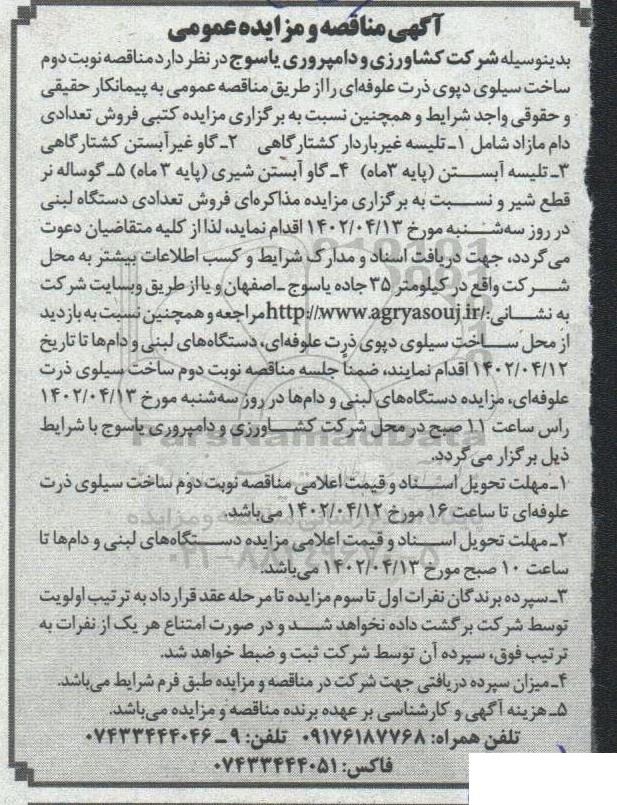 آگهی مناقصه و مزایده عمومی
بدینوسیله شرکت کشاورزی و دامپروری یاسوج در نظر دارد مناقصه نوبت دوم
ساخت سیلوی دپوی ذرت علوفه‌ای را از طریق مناقصه عمومی به پیمانکار حقیقی
و حقوقی واجد شرایط و همچنین نسبت به برگزاری مزایده کتبی فروش تعدادی
دام مازاد شامل ۱ـ تلیسه غیرباردار کشتارگاهی ۲ـ گاو غیرآبستن کشتارگاهی
۳ـ تلیسه آبستن (پایه ۳ماه) ۴ـ گاو آبستن شیری (پایه ۳ ماه) ۵ـ گوساله نر
قطع شیر و نسبت به برگزاری مزایده مذاکره‌ای فروش تعدادی دستگاه لبنی
در روز سه‌شنبه مورخ ۱۴۰۲/۰۴/۱۳ اقدام نماید، لذا از کلیه متقاضیان دعوت
می‌گردد، جهت دریافت اسناد و مدارک شرایط و کسب اطلاعات بیشتر به محل
شرکت واقع در کیلومتر ۳۵ جاده یاسوج ـ اصفهان و یا از طریق وبسایت شرکت
به نشانی: http://www.agryasouj.ir/ مراجعه و همچنین نسبت به بازدید
از محل ساخت سیلوی دپوی ذرت علوفه‌ای، دستگاه‌های لبنی و دام‌ها تا تاریخ
۱۴۰۲/۰۴/۱۲ اقدام نمایند، ضمناً جلسه مناقصه نوبت دوم ساخت سیلوی ذرت
علوفه‌ای، مزایده دستگاه‌های لبنی و دام‌ها در روز سه‌شنبه مورخ ۱۴۰۲/۰۴/۱۳
راس ساعت ۱۱ صبح در محل شرکت کشاورزی و دامپروری یاسوج با شرایط
ذیل برگزار می‌گردد.
۱ـ مهلت تحویل اسناد و قیمت اعلامی مناقصه نوبت دوم ساخت سیلوی ذرت
علوفه‌ای تا ساعت ۱۶ مورخ ۱۴۰۲/۰۴/۱۲ می‌باشد.
۲ـ مهلت تحویل اسناد و قیمت اعلامی مزایده دستگاه‌های لبنی و دام‌ها تا
ساعت ۱۰ صبح مورخ ۱۴۰۲/۰۴/۱۳ می‌باشد.
۳ـ سپرده برندگان نفرات اول تا سوم مزایده تا مرحله عقد قرارداد به ترتیب اولویت
توسط شرکت برگشت داده نخواهد شد و در صورت امتناع هر یک از نفرات به
ترتیب فوق، سپرده آن توسط شرکت ثبت و ضبط خواهد شد.
۴ـ میزان سپرده دریافتی جهت شرکت در مناقصه و مزایده طبق فرم شرایط می‌باشد.
۵ـ هزینه آگهی و کارشناسی بر عهده برنده مناقصه و مزایده می‌باشد.
تلفن همراه: ۰۹۱۷۶۱۸۷۷۶۸ تلفن: ۹ـ۰۷۴۳۳۴۴۴۰۴۶
فاکس: ۰۷۴۳۳۴۴۴۰۵۱